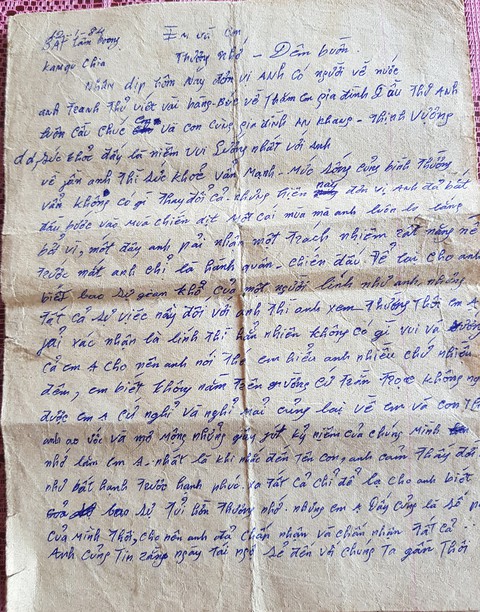 10-1-84 Em và con
Sát Tầm Boong
Kampu Chia Thương Nhớ - Đêm buồn.
Nhân dịp hôm Nay đơn vị ANH có người về nước
anh tranh thủ viết vài hàng về Thăm em gia đình Đầu Thư Anh
luôn cầu chúc em và con cùng gia đình AN Khang - Thịnh Vượng
dd, Sức Khỏe đấy là niềm vui Sướng nhất với anh
về phần anh thì Sức khoẻ vẫn Mạnh - Mức Sống cũng bình Thường
vẫn không có gì thay đổi cả. nhưng hiện nay đơn vị Anh đã bắt
đầu bước vào mùa chiến dịt một cái mùa mà anh luôn lo lắng
bởi vì, một đây anh pải nhận một trách nhiệm rất nặng nề
trước mắt anh chỉ là hành quân - chiến đấu để lại cho anh
biết bao sự gian khổ của một người lính như anh, nhưng
tất cả sự việc này đối với anh thì anh xem thường Thôi em A
pải xác nhận là lính thì hẳn nhiên không có gì vui và sướng
cả em A cho nên anh nói Thế em hiểu anh nhiều chứ nhiều
đêm, em biết không nằm trên võng cứ trằn trọc không ngủ
được em A cứ nghỉ và nghỉ mãi cũng lại về em và con
anh ao ước và mơ mộng những giây phút kỷ niệm của chúng Mình
nhớ lắm em A - nhất là khi nhắc đến tên con, anh cảm Thấy đời
như bất hạnh trước hạnh phúc và tất cả chỉ để lại cho anh biết
bao sự tủi hờn Thương nhớ nhưng em A Đấy cũng là số
của Mình Thôi, cho nên anh đã chấp nhận và chấp nhận tất cả
Anh cũng Tin rằng ngày tái ngộ sẽ đến với chúng Ta gần Thôi